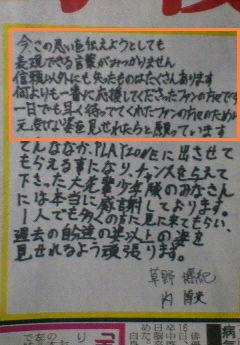 今この思い伝えようとしても
表現できる言葉がみつかりません
信頼以外にも失ったものはたくさんあります
何よりも一番に応援してくださったファンの方々です
一日でも早く待っててくれたファンの方々のために
元気な姿を見せれたらと願っています
そんななか、PLAYZONEに出させて
もらえる事になり、チャンスを与えて
下さった大先輩少年隊のみなさん
には本当に感謝しております。
1人でも多くの方に見に来てもらい、
過去の自分達の姿以上の姿を
見せれるよう頑張ります。
草野博紀
内博貴